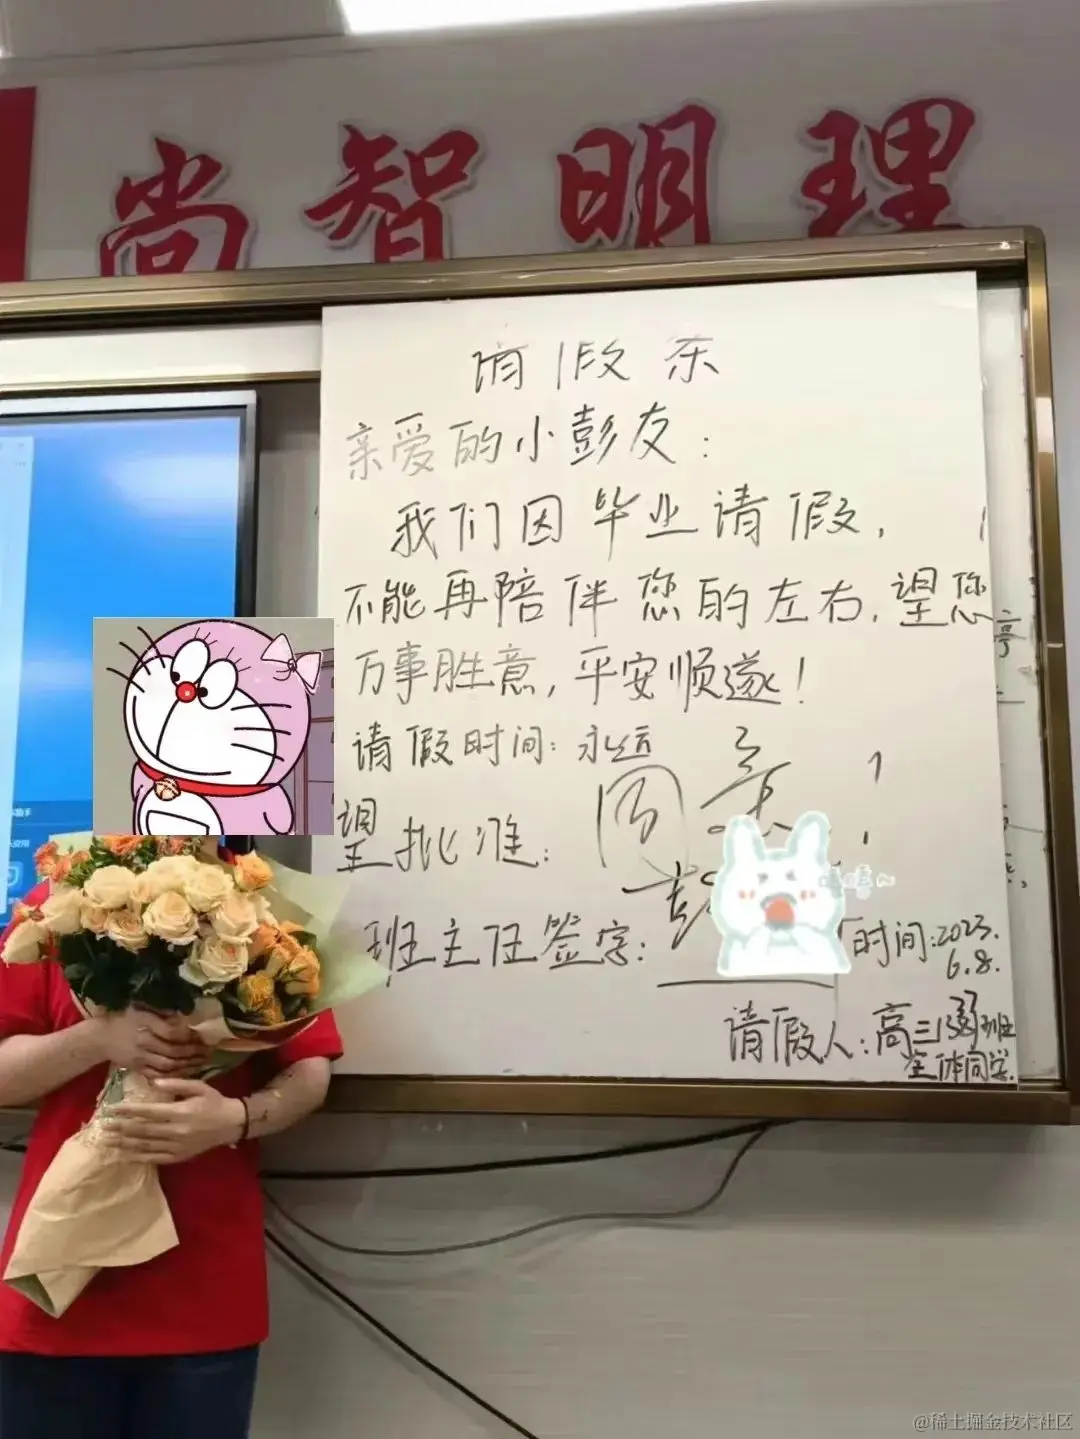 尚智明理
请假条
亲爱的小彭友：
我们因毕业请假，
不能再陪伴您的左右，望您
万事胜意，平安顺遂！
请假时间：永远
望批准：
班主任签字：
时间：2023.
6.8.
请假人：高三
班
全体同学.
@稀土掘金技术社区